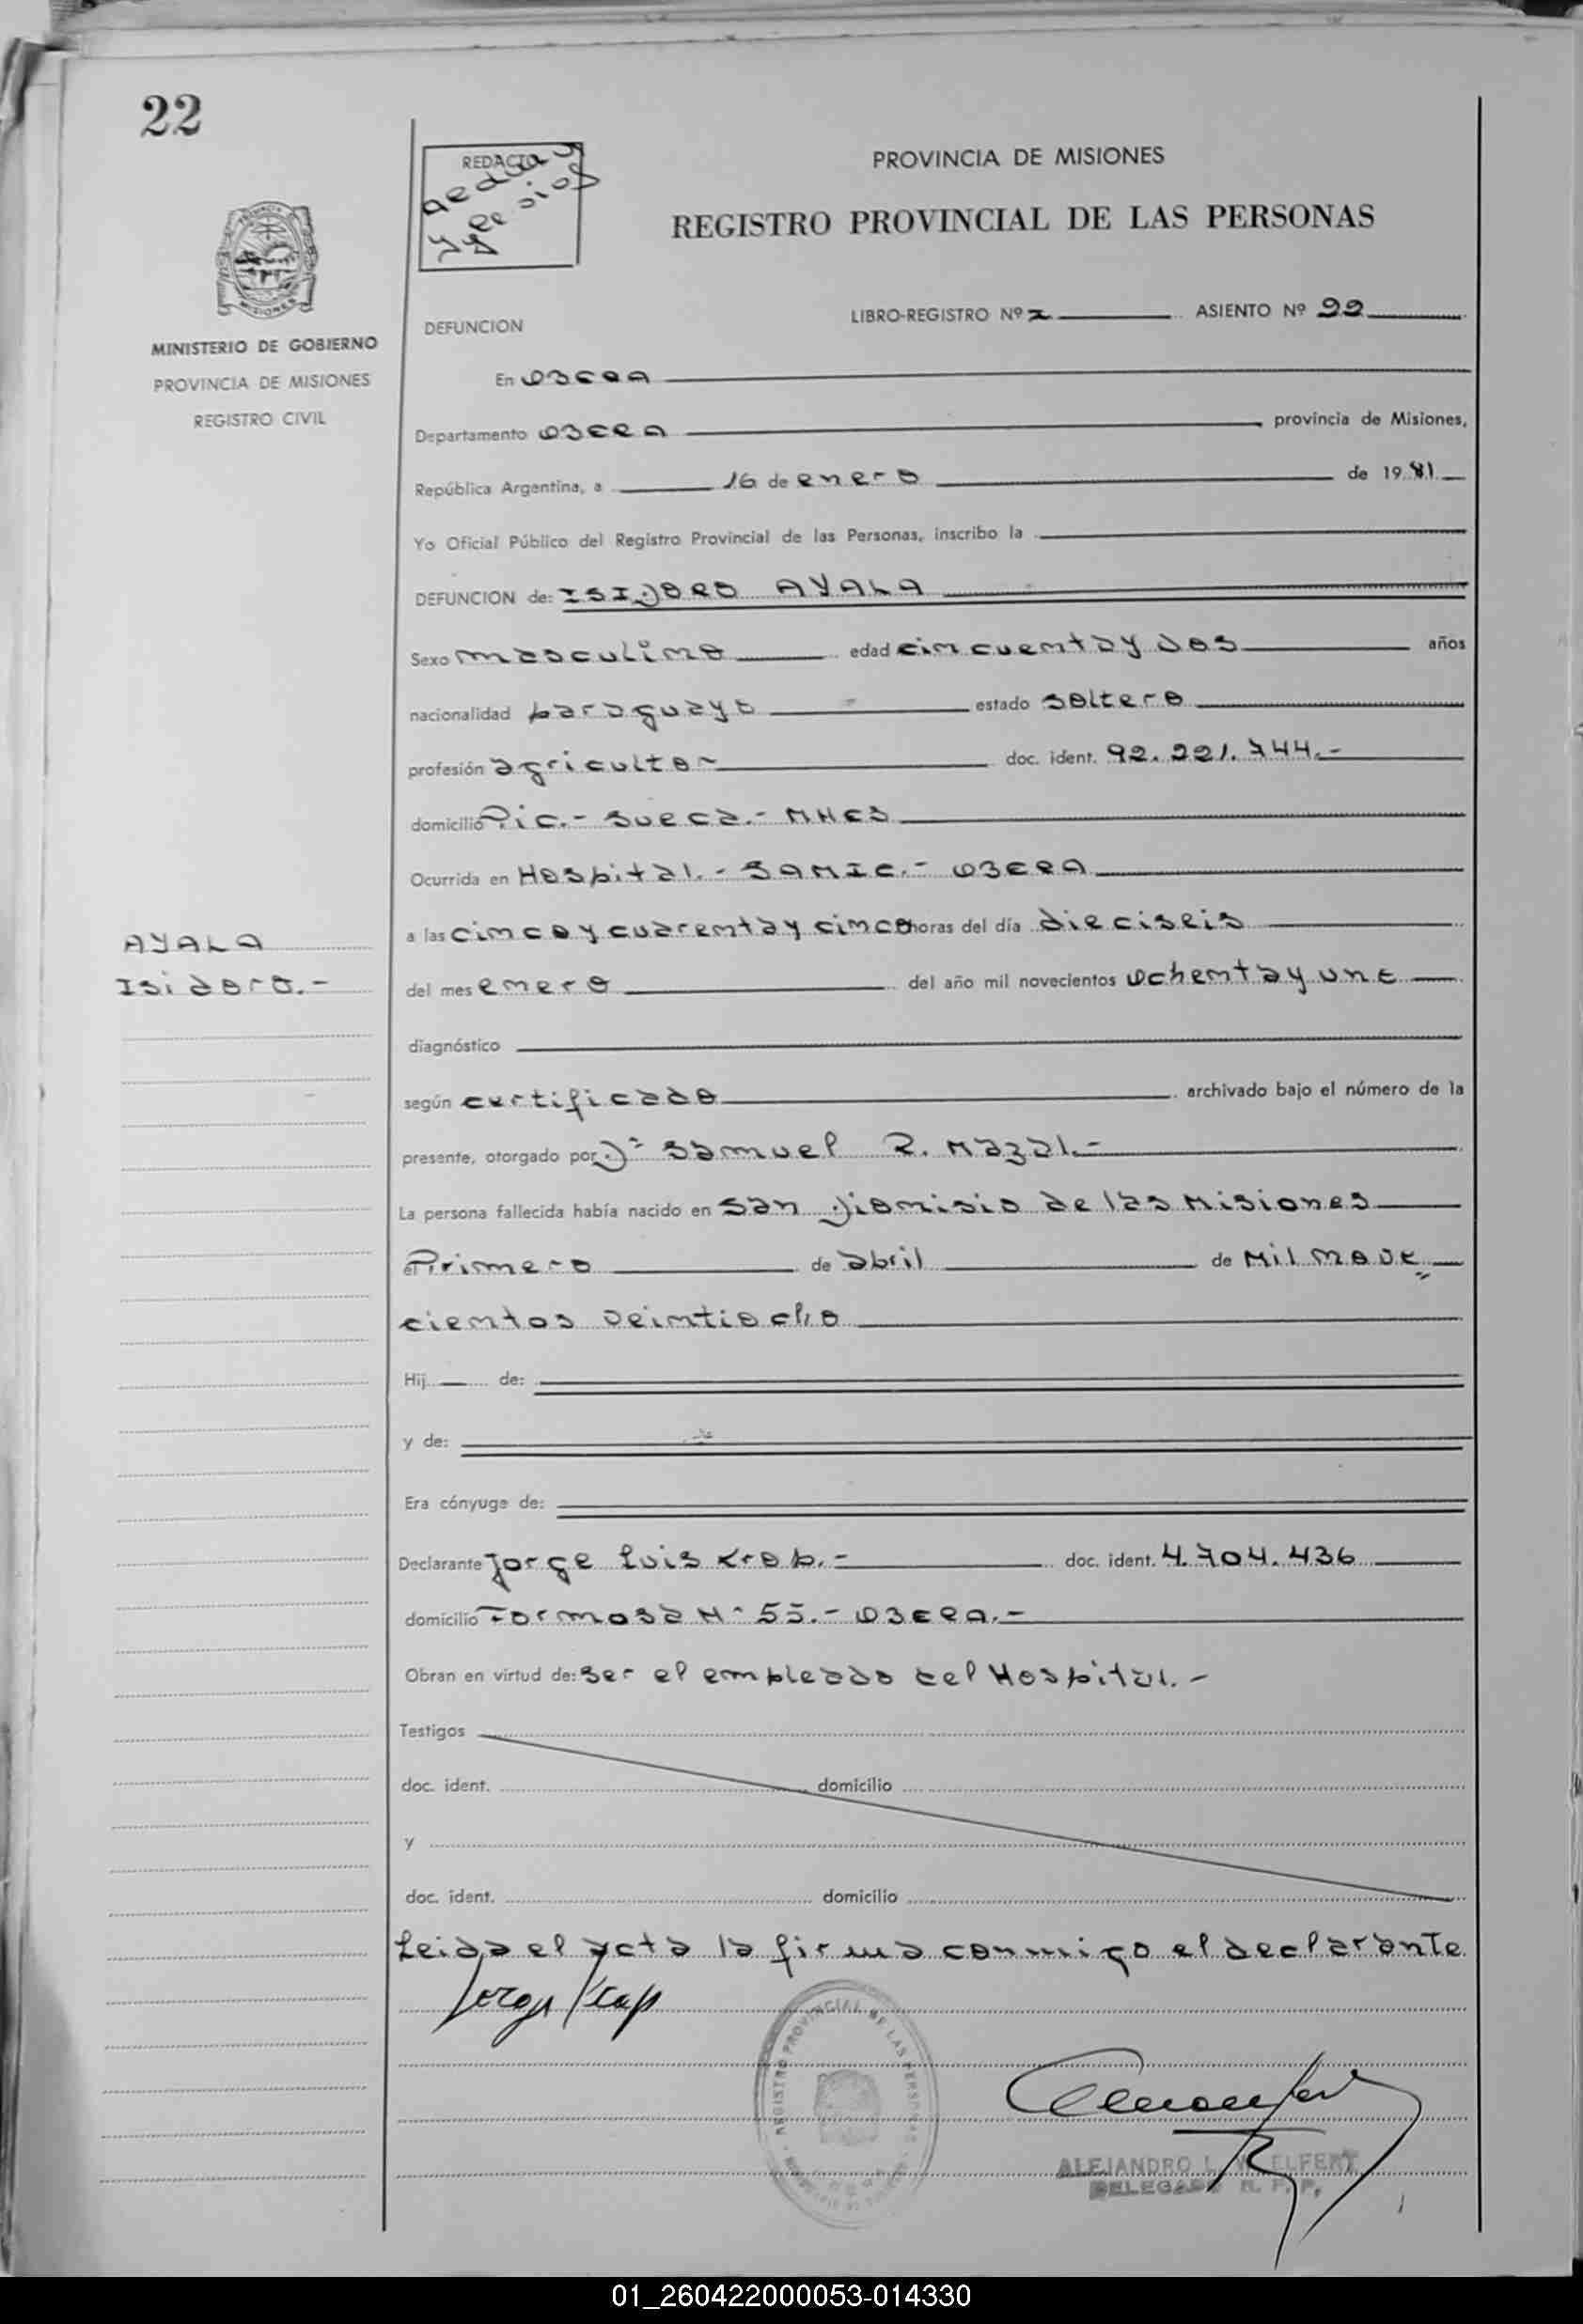 22
REDACTO
PROVINCIA DE MISIONES
REGISTRO PROVINCIAL DE LAS PERSONAS
MINISTERIO DE GOBIERNO
PROVINCIA DE MISIONES
REGISTRO CIVIL
DEFUNCION
LIBRO-REGISTRO Nº I ASIENTO Nº 22
En OBERA
Departamento OBERA, provincia de Misiones,
República Argentina, a 16 de enero de 1981
Yo Oficial Público del Registro Provincial de las Personas, inscribo la
DEFUNCION de: ISIDORO AYALA
Sexo masculino edad cincuentay dos años
nacionalidad paraguayo estado soltero
profesión agricultor doc. ident. 92.221.744.-
domicilio Pic.- Sueca.-
Ocurrida en Hospital.- SAMIC.- OBERA
a las cinco y cuarentay cinco horas del día dieciseis
AYALA
Isidoro.-
del mes enero del año mil novecientos ochentay uno
diagnóstico
según certificado archivado bajo el número de la
presente, otorgado por Dr Samuel R. Mazal.-
La persona fallecida había nacido en San Dionisio de las Misiones
el Primero de abril de Mil nove
cientos veintiocho
Hij de:
y de:
Era cónyuge de:
Declarante Jorge Luis Krop.- doc. ident. 4.704.436
domicilio Formosa Nº 55.- OBERA.-
Obran en virtud de: ser el empleado del Hospital.-
Testigos
doc. ident. domicilio
y
doc. ident. domicilio
Leida el acta la firma conmigo el declarante
Jorge Krop
REGISTRO PROVINCIAL DE LAS PERSONAS
ALEJANDRO L.
DELEGADO R. P. P.
01_260422000053-014330